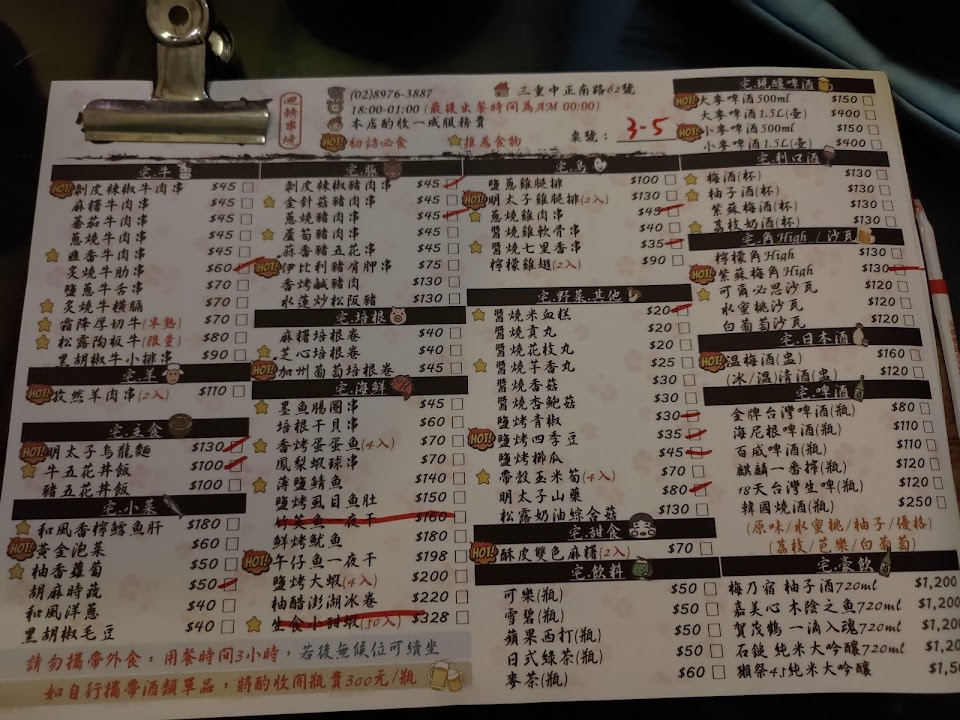 迴轉串燒
(02)8976-3887
18:00-01:00 (最後出餐時間為AM 00:00)
本店酌收一成服務費
三重中正南路62號
桌號: 3-5
HOT! 初訪必食
推薦食物
宅.牛
HOT! 剝皮辣椒牛肉串 $45
麻糬牛肉串 $45
蕃茄牛肉串 $45
蔥燒牛肉串 $45
誰香牛肉串 $45
炙燒牛肋串 $60
鹽蔥牛舌串 $70
炙燒牛橫膈 $70
霜降厚切牛(半熟) $70
松露陶板牛(限量) $80
黑胡椒牛小排串 $90
宅.羊
HOT! 孜然羊肉串(2入) $110
宅.主食
HOT! 明太子烏龍麵 $130
牛五花丼飯 $100
豬五花丼飯 $100
宅.小菜
和風香檸鱈魚肝 $180
HOT! 黃金泡菜 $60
柚香蘿蔔 $50
胡麻時蔬 $50
和風洋蔥 $40
黑胡椒毛豆 $40
宅.豚
剝皮辣椒豬肉串 $45
金針菇豬肉串 $45
蔥燒豬肉串 $45
蘆筍豬肉串 $45
蒜香豬五花串 $45
HOT! 伊比利豬肩胛串 $75
香烤鹹豬肉 $130
水蓮炒松阪豬 $130
宅.培根
麻糬培根卷 $40
芝心培根卷 $40
HOT! 加州葡萄培根卷 $45
宅.海鮮
墨魚腸圈串 $45
培根干貝串 $60
香烤蛋蛋魚(4入) $70
鳳梨蝦球串 $70
薄鹽鯖魚 $140
鹽烤虱目魚肚 $150
竹筴魚一夜干 $160
鮮烤魷魚 $180
HOT! 午仔魚一夜干 $198
鹽烤大蝦(4入) $200
柚醋澎湖冰卷 $220
生食小甜蝦(30入) $328
宅.鳥
鹽蔥雞腿排 $100
HOT! 明太子雞腿排(2入) $130
蔥燒雞肉串 $45
醬燒雞軟骨串 $40
醬燒七里香串 $35
檸檬雞翅(2入) $90
宅.野菜.其他
醬燒米血糕 $20
醬燒貢丸 $20
醬燒花枝丸 $20
醬燒芋香丸 $25
醬燒香菇 $30
醬燒杏鮑菇 $30
鹽烤青椒 $30
HOT! 鹽烤四季豆 $35
鹽烤櫛瓜 $45
帶殼玉米筍(4入) $70
明太子山藥 $80
松露奶油綜合菇 $130
宅.甜食
HOT! 酥皮雙色麻糬(2入) $70
宅.飲料
可樂(瓶) $50
雪碧(瓶) $50
蘋果西打(瓶) $50
日式綠茶(瓶) $50
麥茶(瓶) $60
宅.現釀啤酒
HOT! 大麥啤酒500ml $150
大麥啤酒1.5L(壺) $400
HOT! 小麥啤酒500ml $150
小麥啤酒1.5L(壺) $400
宅.利口酒
梅酒(杯) $130
柚子酒(杯) $130
紫蘇梅酒(杯) $130
荔枝奶酒(杯) $130
宅.角High / 沙瓦
檸檬角High $130
HOT! 紫蘇梅角High $130
可爾必思沙瓦 $120
水蜜桃沙瓦 $120
白葡萄沙瓦 $120
宅.日本酒
HOT! 溫梅酒(盅) $160
(冰/溫)清酒(盅) $120
宅.啤酒
金牌台灣啤酒(瓶) $80
海尼根啤酒(瓶) $110
百威啤酒(瓶) $110
麒麟一番搾(瓶) $120
18天台灣生啤(瓶) $120
韓國燒酒(瓶) $250
(原味/水蜜桃/柚子/優格)
(荔枝/芭樂/白葡萄)
宅.豪飲
梅乃宿 柚子酒720ml $1,200
嘉美心 木陰之魚720ml $1,200
賀茂鶴 一滴入魂720ml $1,20
石鎚 純米大吟釀720ml $1,20
獺祭45純米大吟釀 $1,5
請勿攜帶外食,用餐時間3小時,若後無候位可續坐
如自行攜帶酒類單品,將酌收開瓶費300元/瓶